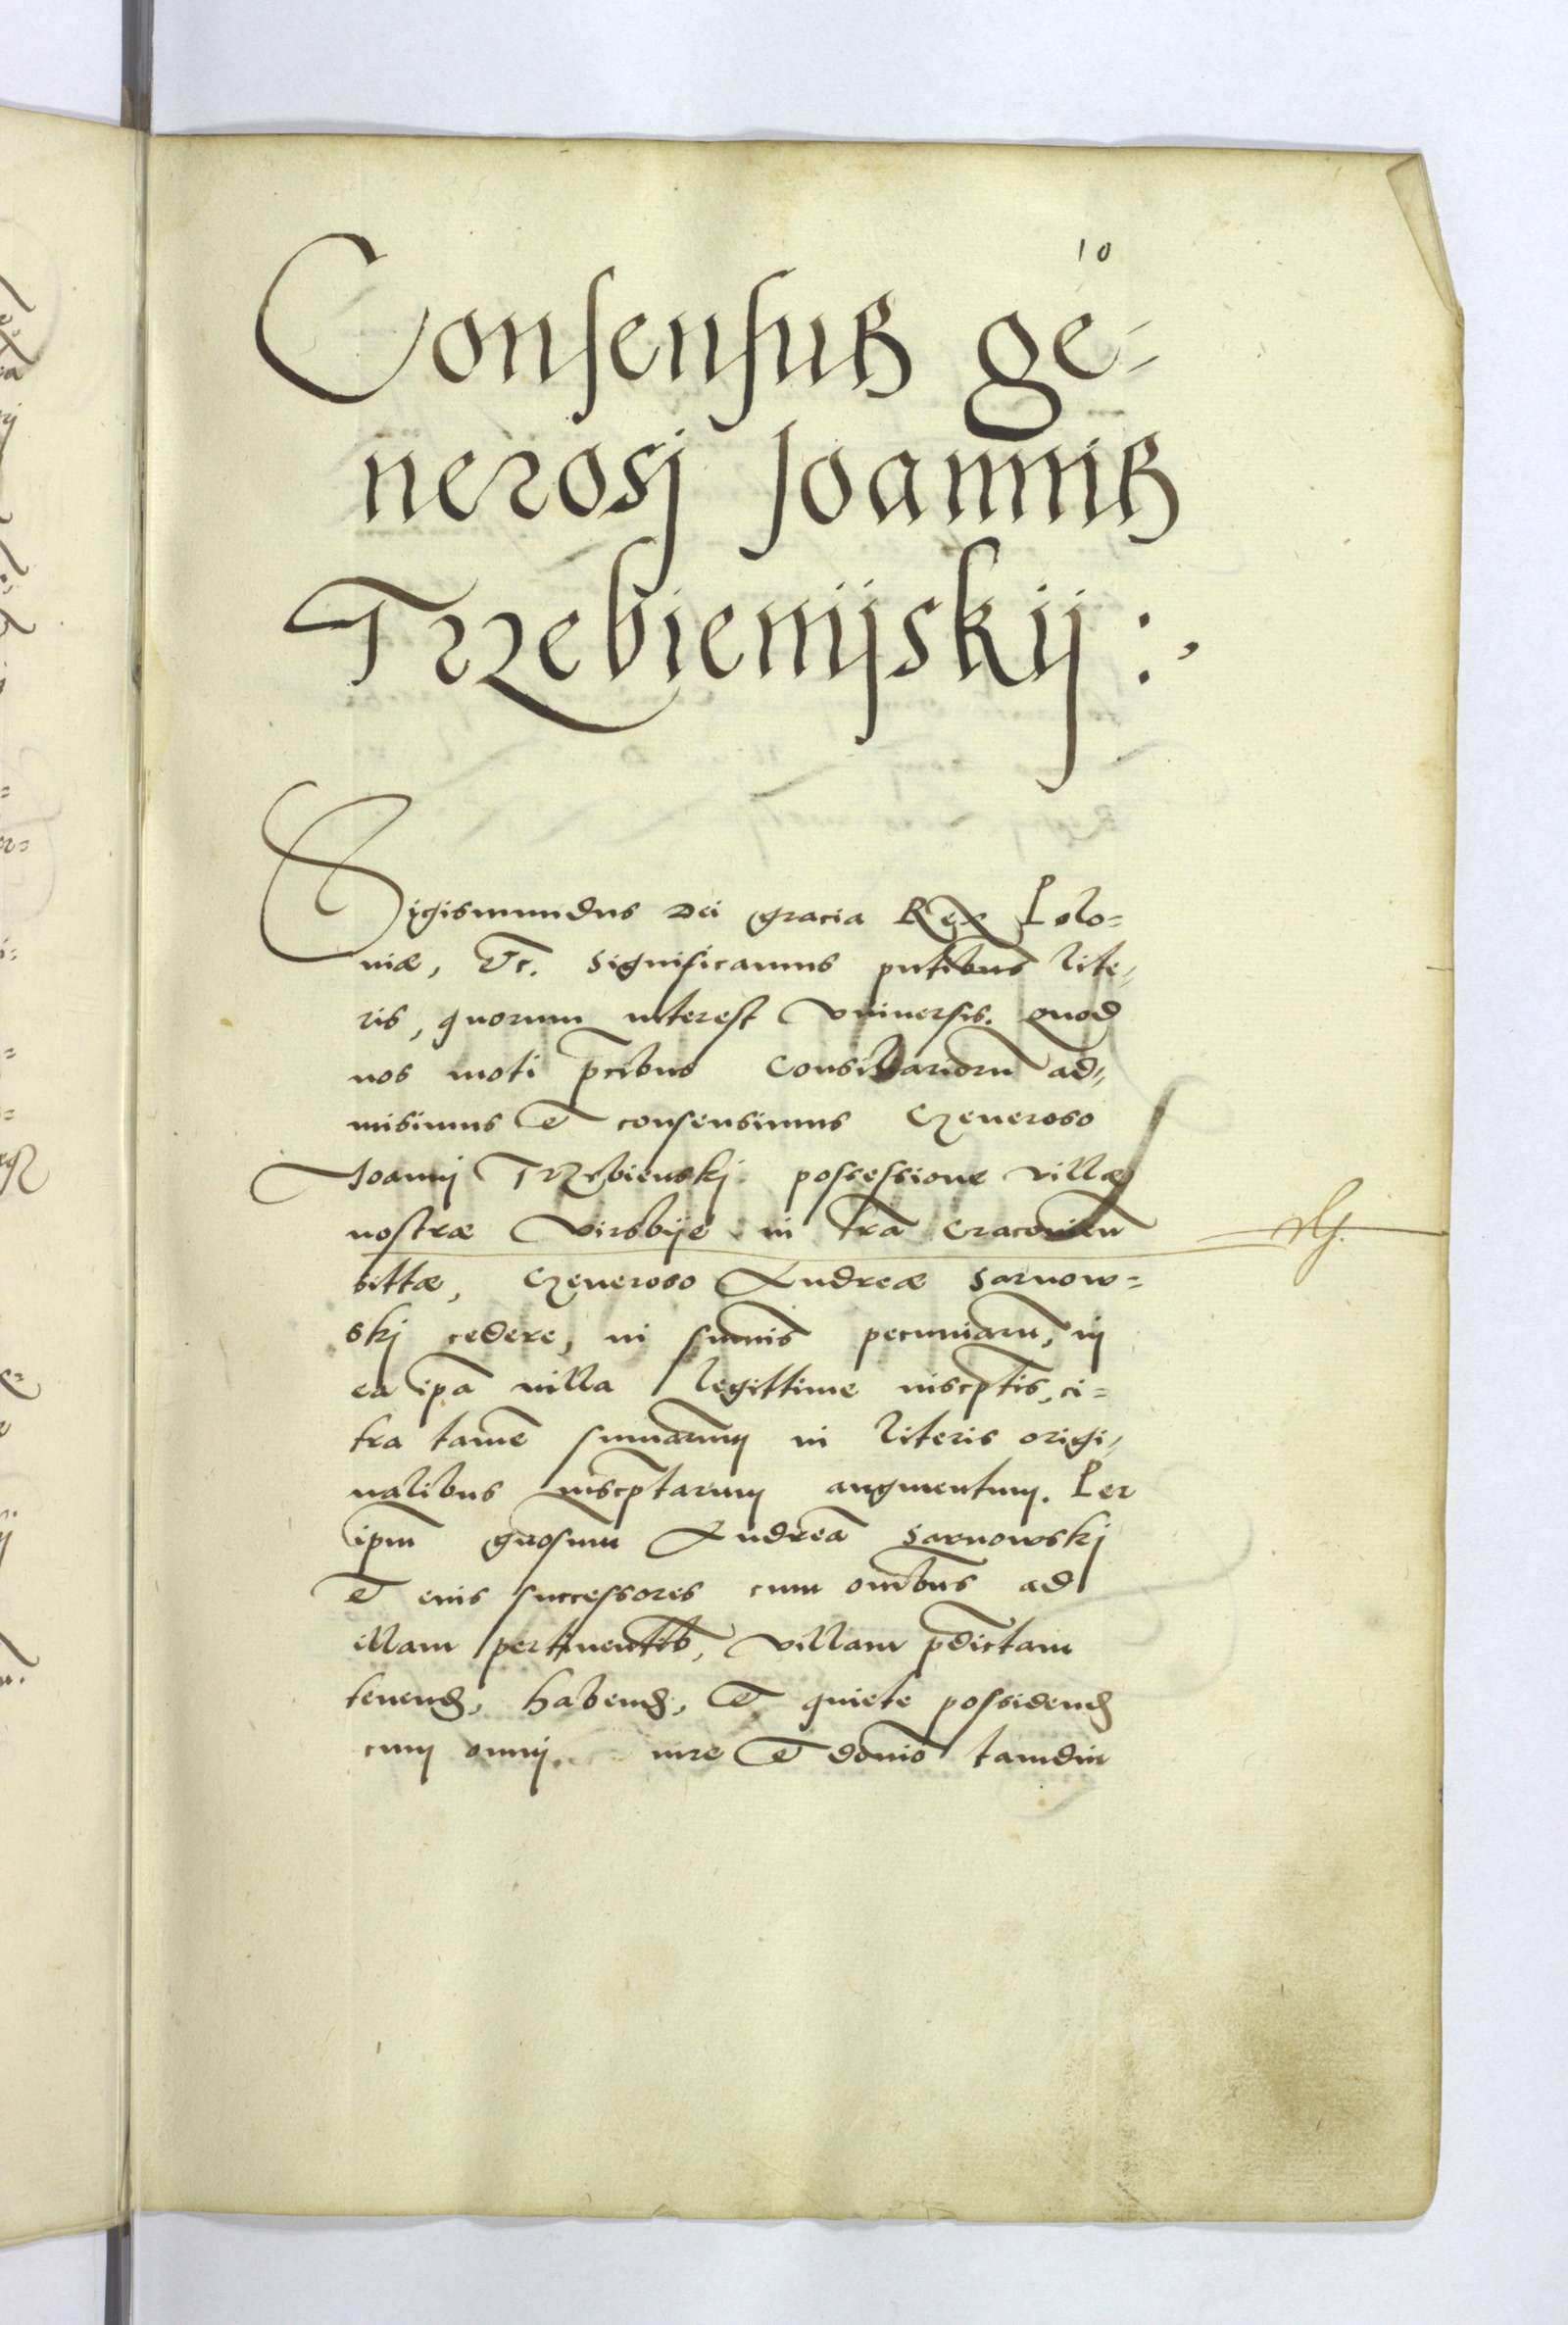 10
Consensus ge-
nerosj Joannis
Trzebienijskij :,
Sigismundus Dei gracia Rex Polo=
niæ, &c. Significamus pntibus lite,
ris, quorum interest Vniversis. quod
nos moti pcibus Consiliariorū ad,,
misimus et consensimus Generoso
Joannj Trzebienskj possessione villæ
nostræ Virsbije in tra Cracovien
sittæ, Generoso Andreæ Sarnow=
skj cedere, in summis pecuniarū, in
ea ipa villa legittime inscptis, ci=
tra tamē summarum in literis origi,
nalibus inscptarum augmentum. Per
ipm gnosum Andreā Sarnowskj
et eius successores cum omibus ad
illam pertinentib, villam pdictam
tenend, habend, et quiete possidend
cum omnj iure et domio tamdiu